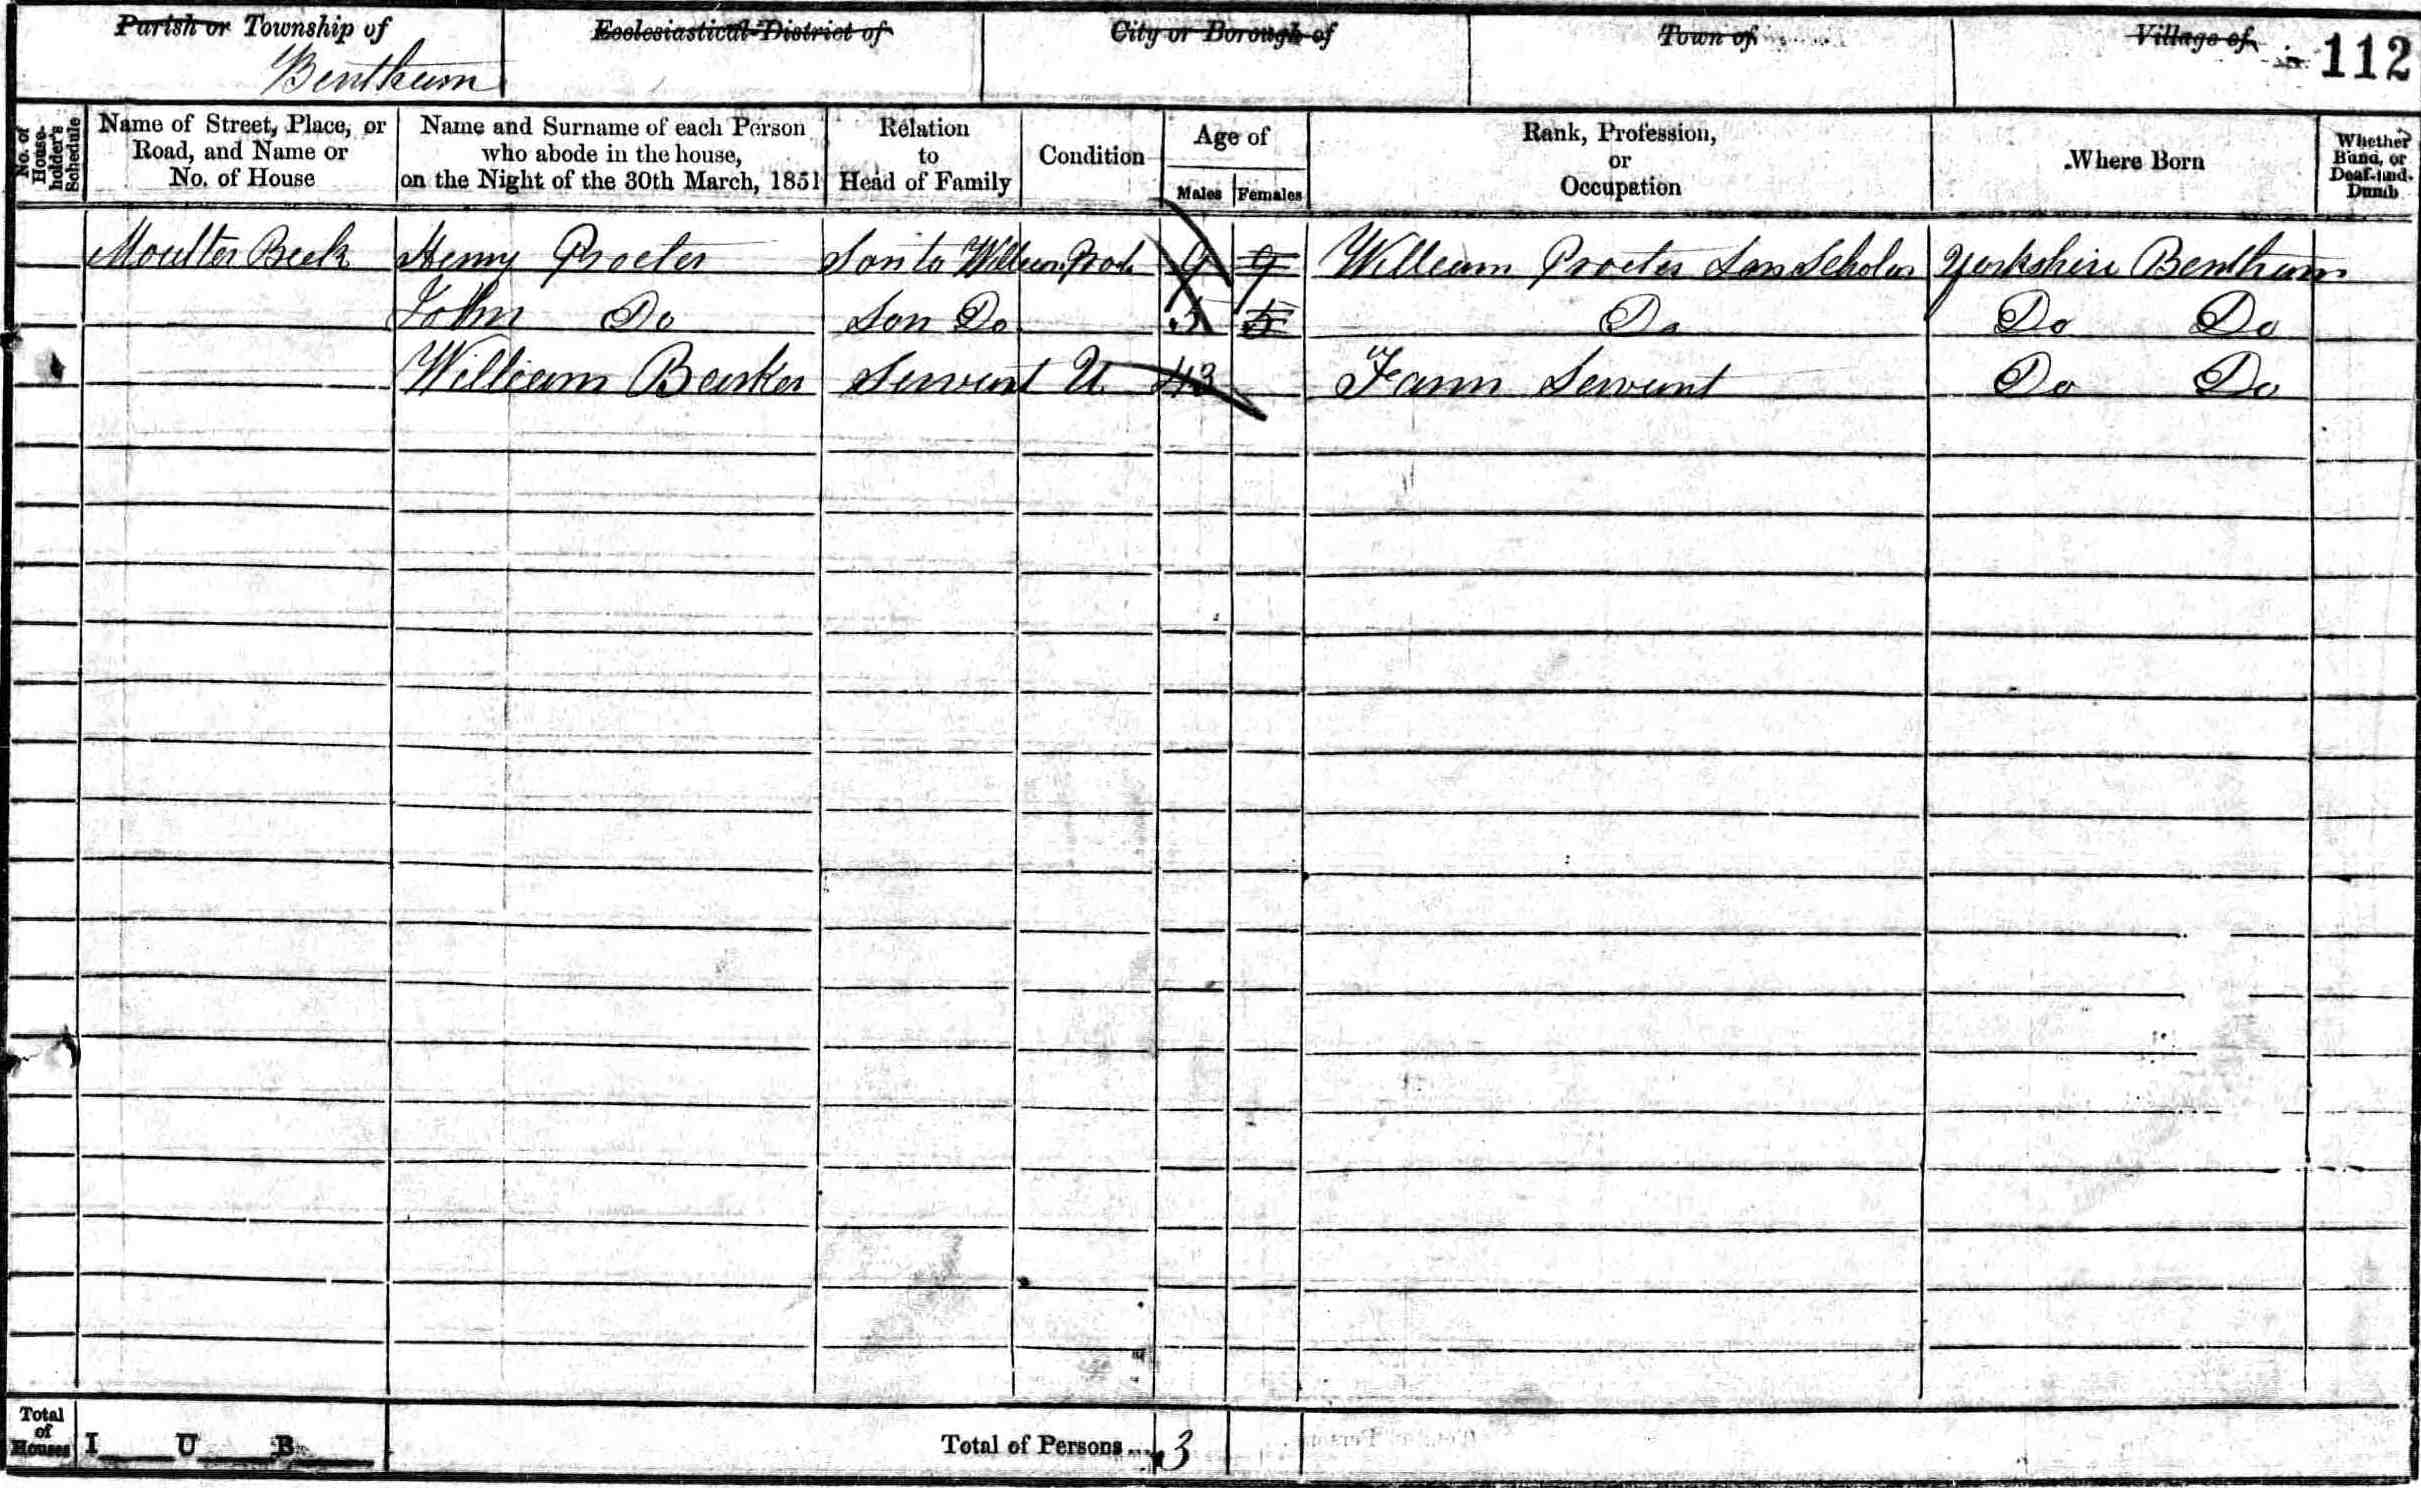 Parish or Township of
Bentham
Ecclesiastical District of
City or Borough of
Town of
Village of
112
No. of House-holder's Schedule
Name of Street, Place, or Road, and Name or No. of House
Name and Surname of each Person who abode in the house, on the Night of the 30th March, 1851
Relation to Head of Family
Condition
Age of
Males Females
Rank, Profession, or Occupation
Where Born
Whether Blind, or Deaf-and-Dumb
Henry Procter Son to William Proct 9 9 William Procter Son Scholar Yorkshire Bentham
John Do Son Do 5 5 Do Do Do
William Barker Servant U 43 Farm Servant Do Do
Total of Houses I U B
Total of Persons 3